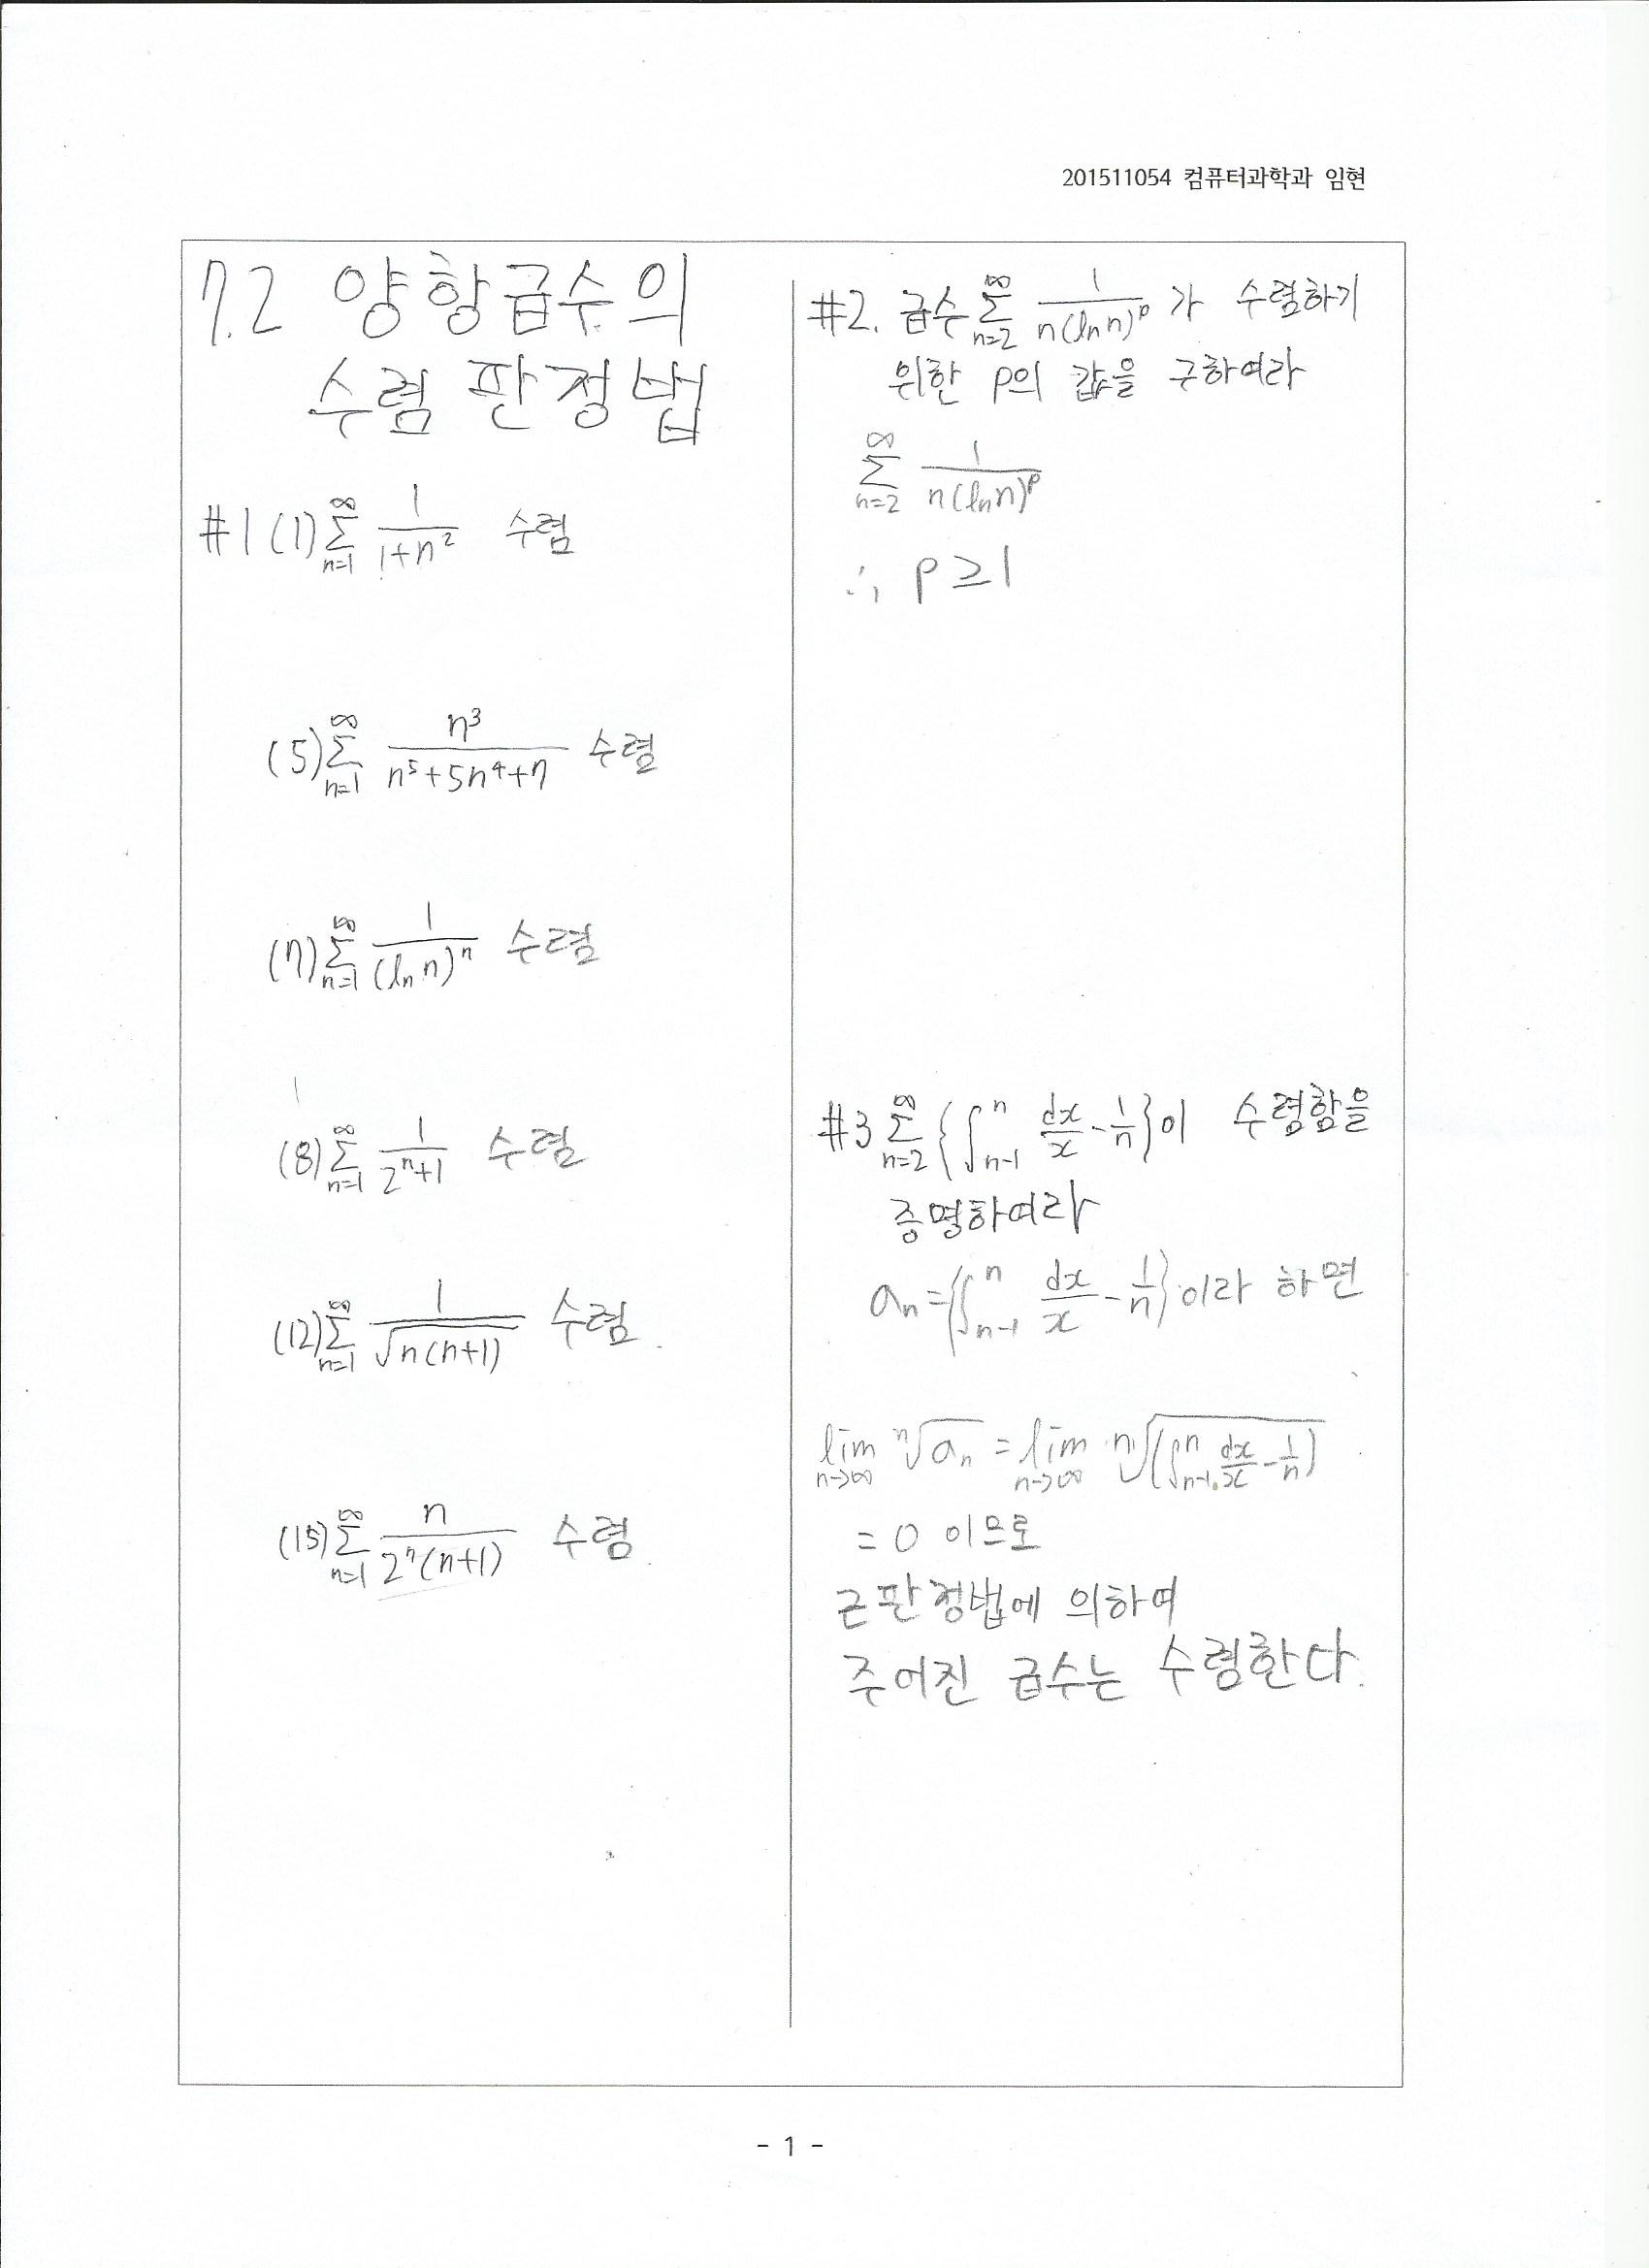 201511054 컴퓨터과학과 임현
7.2 양항급수의
수렴 판정법
#1 (1) ∑_{n=1}^{∞} 1/(1+n²) 수렴
(5) ∑_{n=1}^{∞} n³/(n⁵+5n⁴+7) 수렴
(7) ∑_{n=1}^{∞} 1/(ln n)ⁿ 수렴
(8) ∑_{n=1}^{∞} 1/(2ⁿ+1) 수렴
(12) ∑_{n=1}^{∞} 1/√(n(n+1)) 수렴
(15) ∑_{n=1}^{∞} n/(2ⁿ(n+1)) 수렴
#2. 급수 ∑_{n=2}^{∞} 1/(n(ln n)^p) 가 수렴하기
위한 p의 값을 구하여라
∑_{n=2}^{∞} 1/(n(ln n)^p)
∴ p ≥ 1
#3 ∑_{n=2}^{∞} {∫_{n-1}^{n} dx/x - 1/n}이 수렴함을
증명하여라
a_n = {∫_{n-1}^{n} dx/x - 1/n}이라 하면
lim_{n→∞} ⁿ√(a_n) = lim_{n→∞} ⁿ√(∫_{n-1}^{n} dx/x - 1/n)
= 0 이므로
근판정법에 의하여
주어진 급수는 수렴한다.
- 1 -